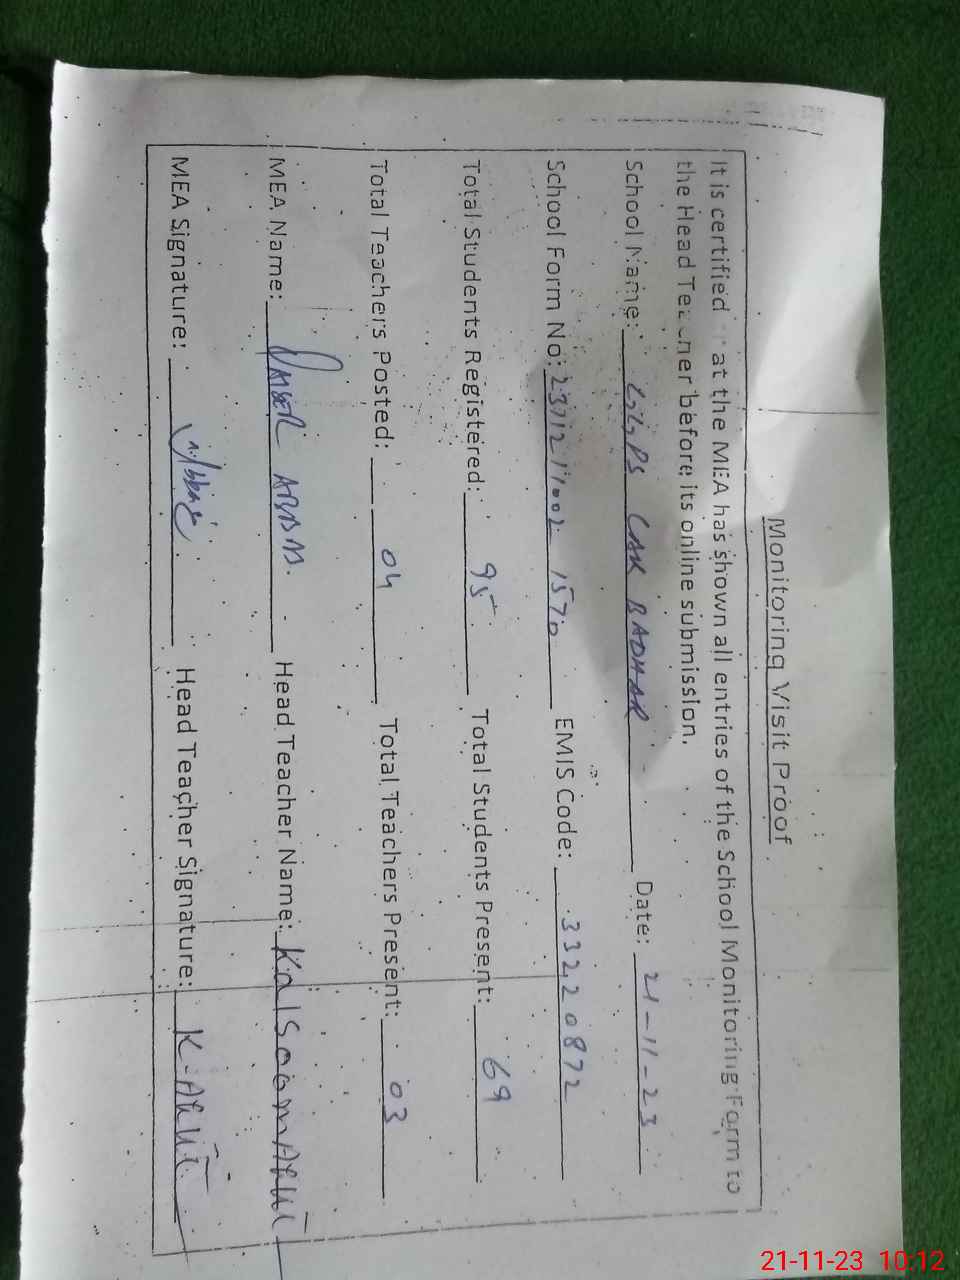 Monitoring Visit Proof
It is certified at the MEA has shown all entries of the School Monitoring Form to
the Head Teacher before its online submission.
School Name: GGPS CAK BADHAR Date: 21-11-23
School Form No: 2371211002 1570 EMIS Code: 33220872
Total Students Registered: 95 Total Students Present: 69
Total Teachers Posted: 04 Total Teachers Present: 03
MEA Name: Head Teacher Name: Kalsoom
MEA Signature: Head Teacher Signature:
21-11-23 10:12